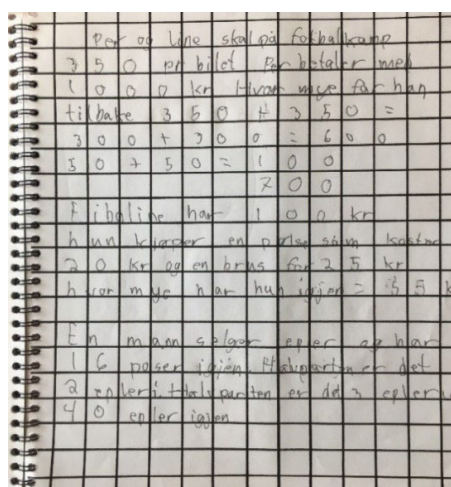 Per og Line skal på fotbalkamp
350 pr bilet Per betaler med
1000 kr Hvor mye får han
tilbake 350 + 350 =
300 + 300 = 600
50 + 50 = 100
700
har 100 kr
hun kjøper en pølse som koster
20 kr og en brus for 25 kr
hvor mye har hun igjen = 55 k
En mann selger epler og har
16 poser igjen. Halvparten er det
2 epler i. Halvparten er det 3 epler
40 epler igjen